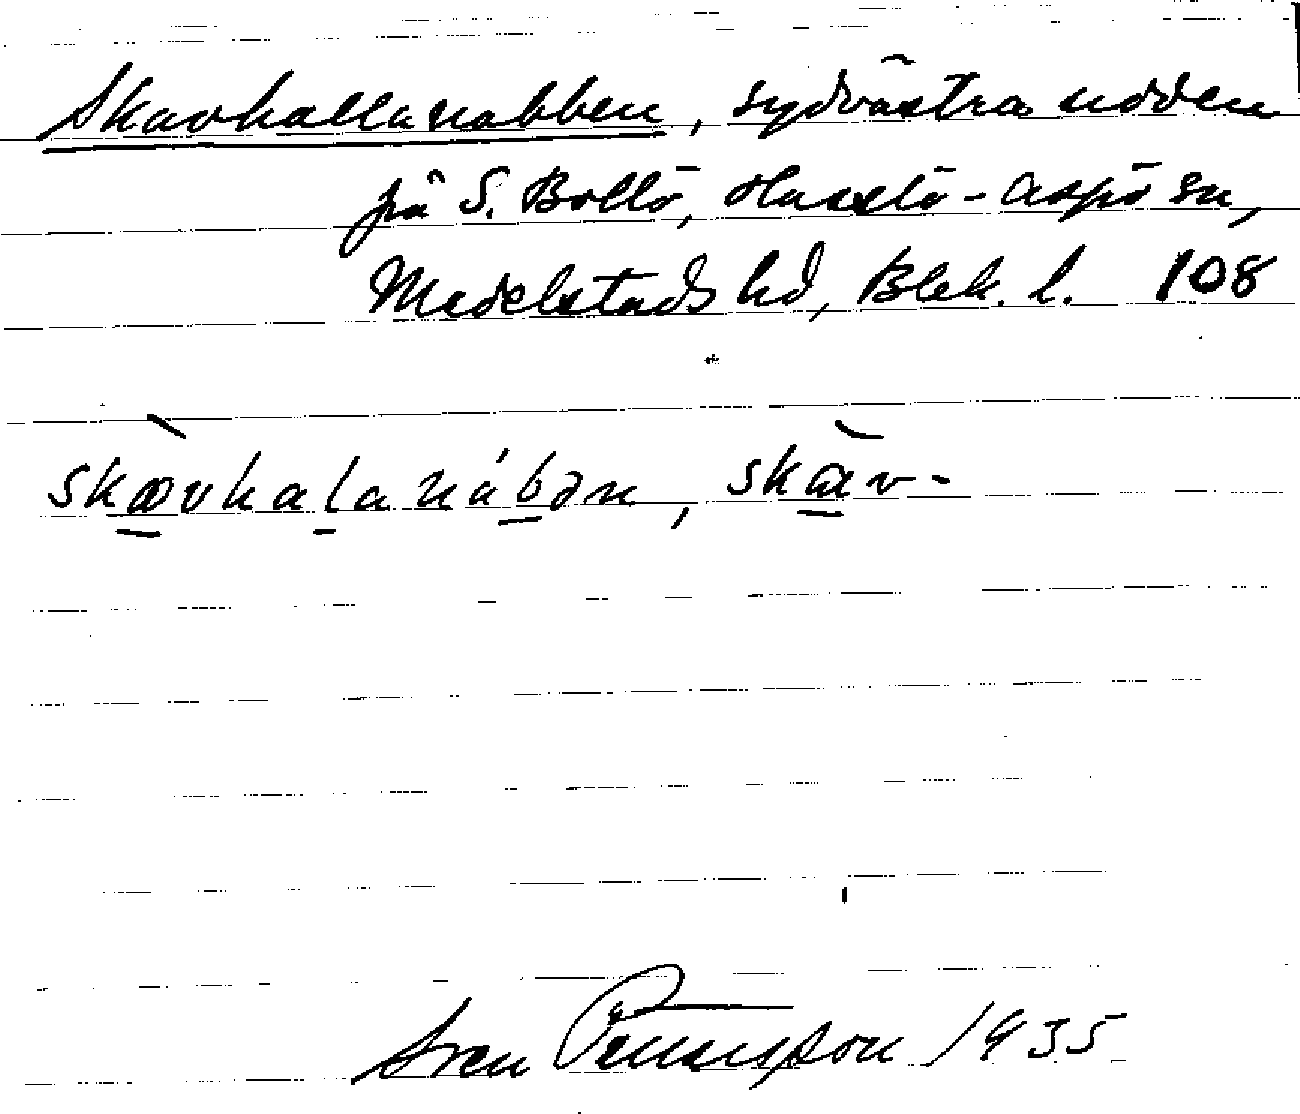 Skavhallanabben, sydvästra udden
på S. Bollö, Hasslö-Aspö sn,
Medelstads hd, Blek. l. 108
skævhalanábən, skav-
Sven 1935